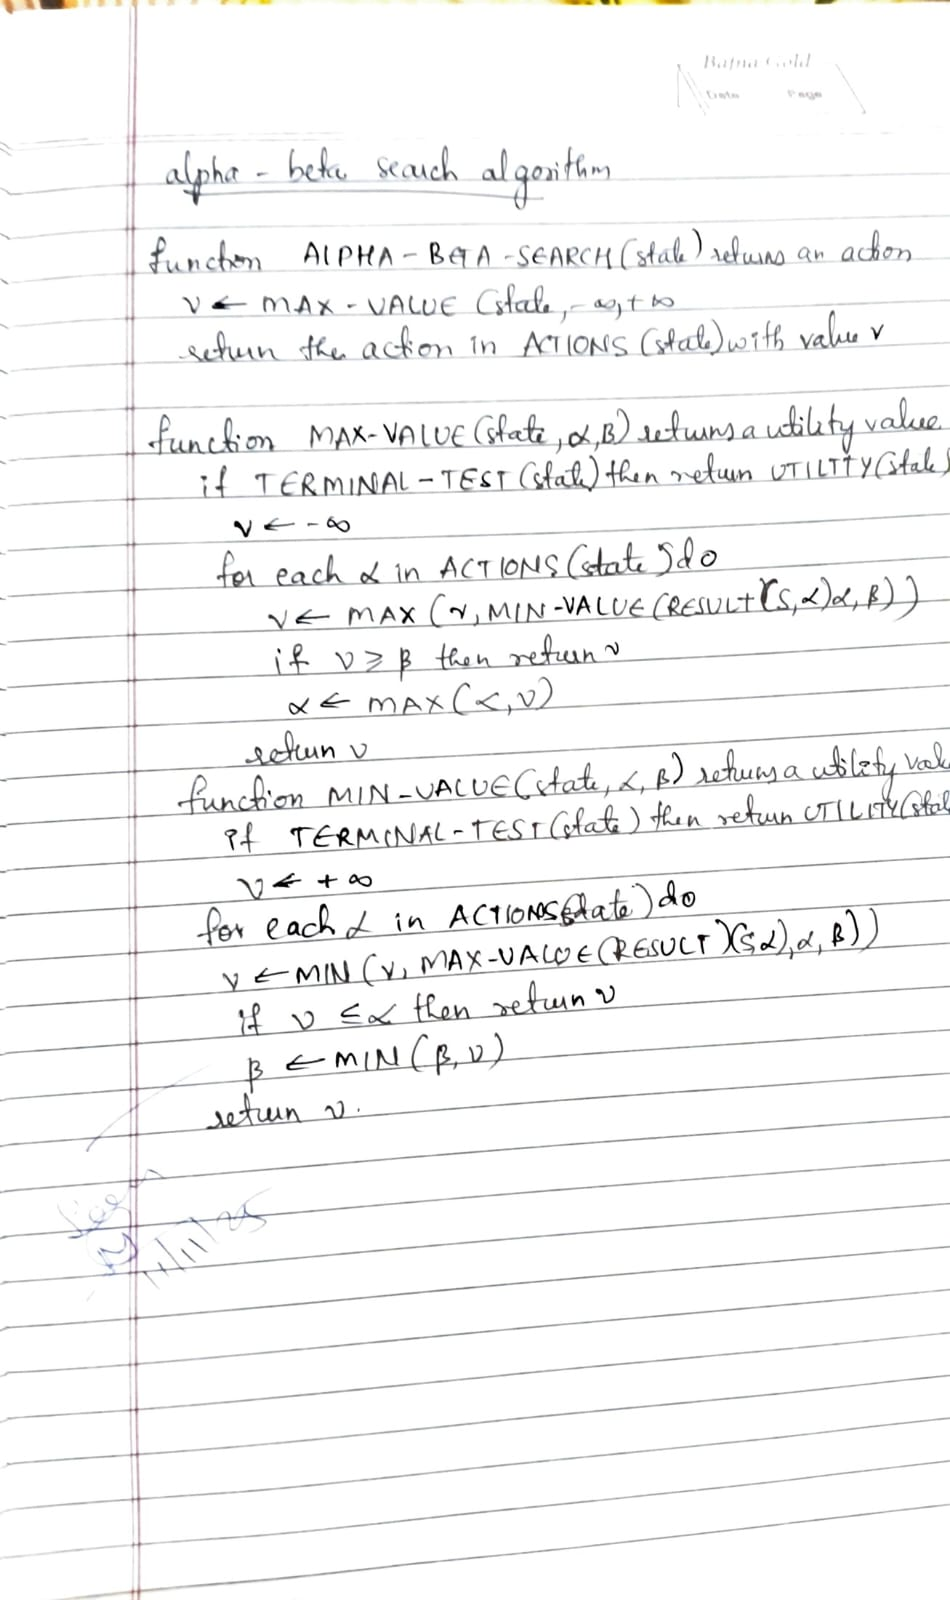 Bafna Gold
Date Page
alpha - beta search algorithm
function ALPHA-BETA-SEARCH(state) returns an action
v ← MAX-VALUE (state, -∞, +∞
return the action in ACTIONS (state) with value v
function MAX-VALUE(state, α, β) returns a utility value
if TERMINAL-TEST (state) then return UTILITY(state)
v ← -∞
for each α in ACTIONS (state) do
v ← MAX (v, MIN-VALUE (RESULT (S, α) α, β))
if v ≥ β then return v
α ← MAX (α, v)
return v
function MIN-VALUE(state, α, β) returns a utility val
if TERMINAL-TEST (state) then return UTILITY(stat
v ← +∞
for each α in ACTIONS(state) do
v ← MIN (v, MAX-VALUE (RESULT )(S, α), α, β))
if v ≤ α then return v
β ← MIN (β, v)
return v.
11/11/25